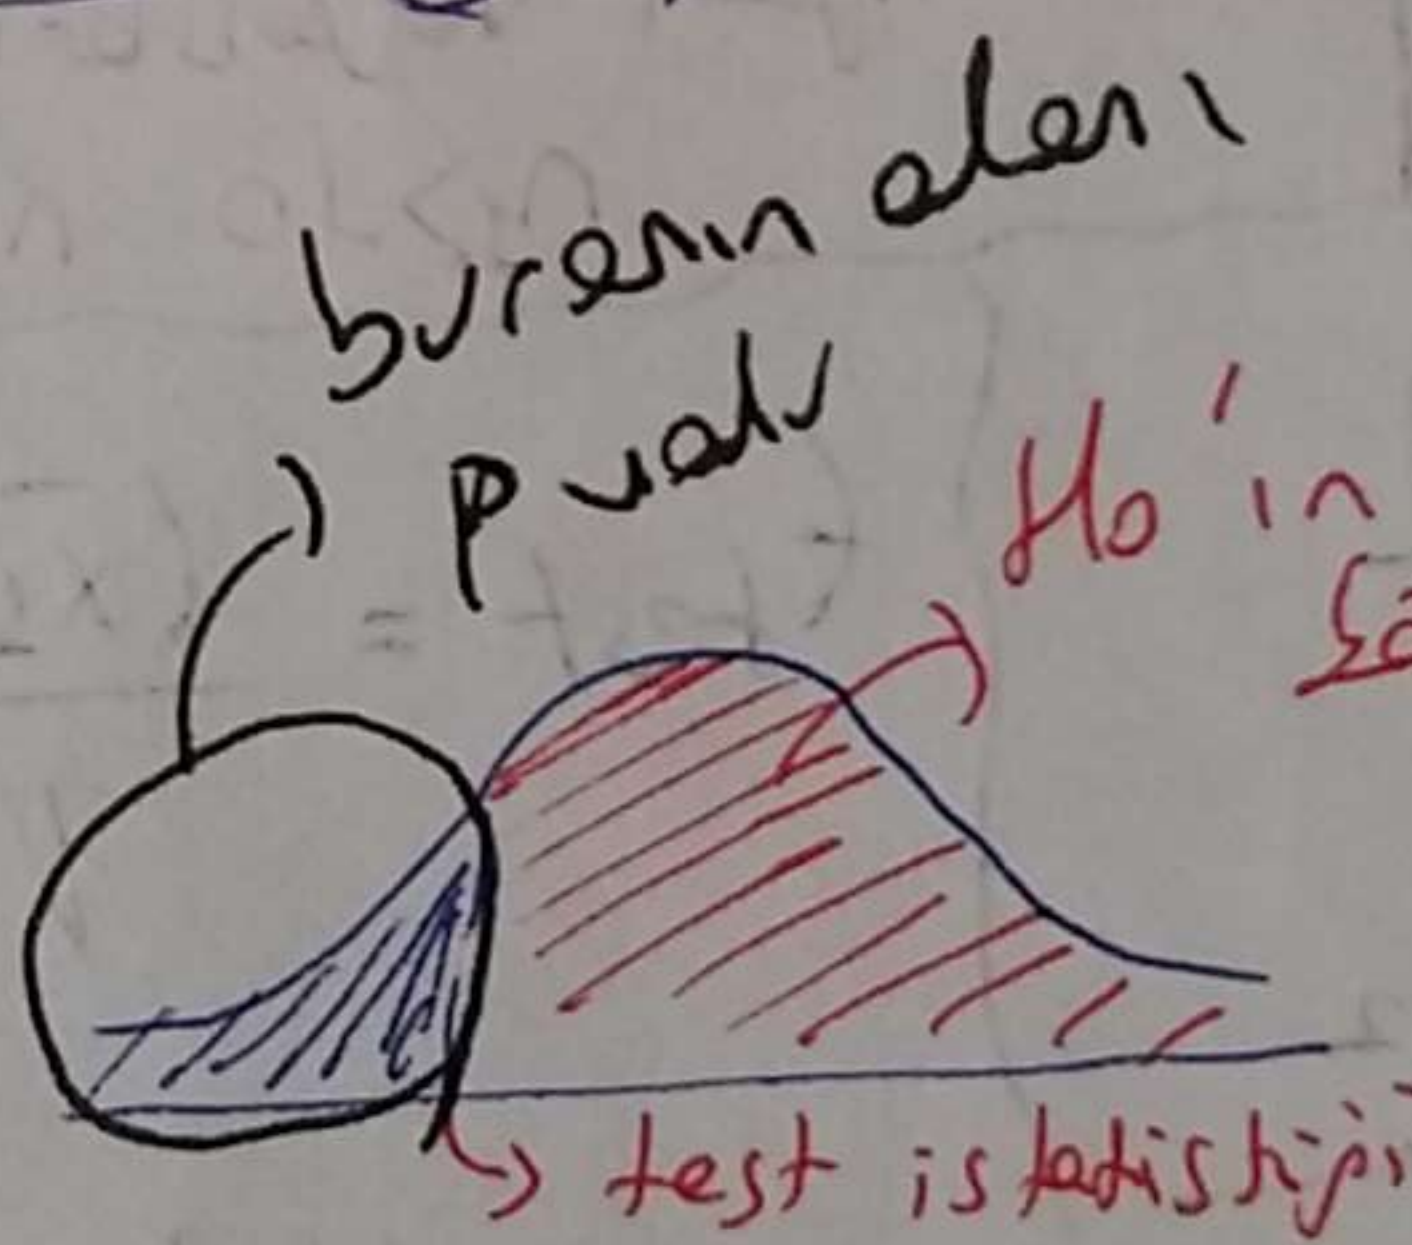 buranın alanı
p valu
H₀'ın
test istatistiği